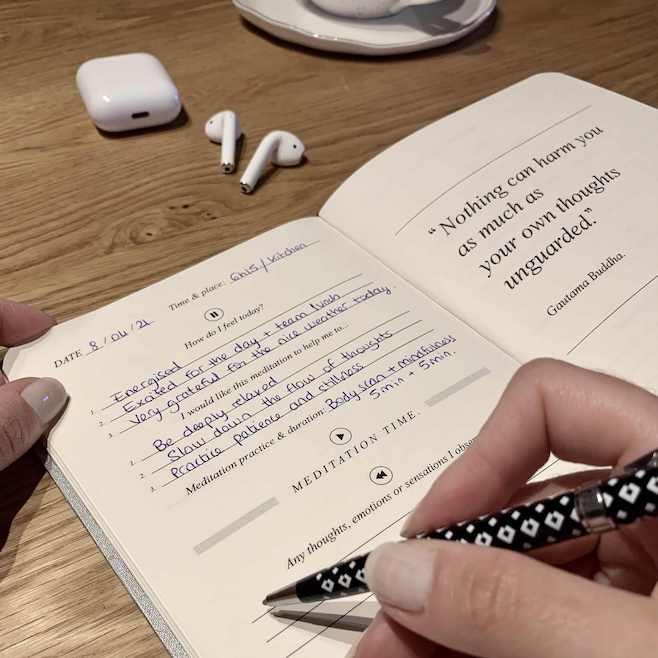 DATE 8 / 04 / 21 Time & place: 6h15 / kitchen
How do I feel today?
1. Energised
2. Exited for the day + team lunch
3. Very grateful for the nice weather today.
I would like this meditation to help me to...
1. Be deeply relaxed
2. Slow down the flow of thoughts
3. Practice patience and stillness
Meditation practice & duration: Body scan + mindfulness
5min + 5min.
MEDITATION TIME.
Any thoughts, emotions or sensations I
“Nothing can harm you
as much as
your own thoughts
unguarded.”
Gautama Buddha.